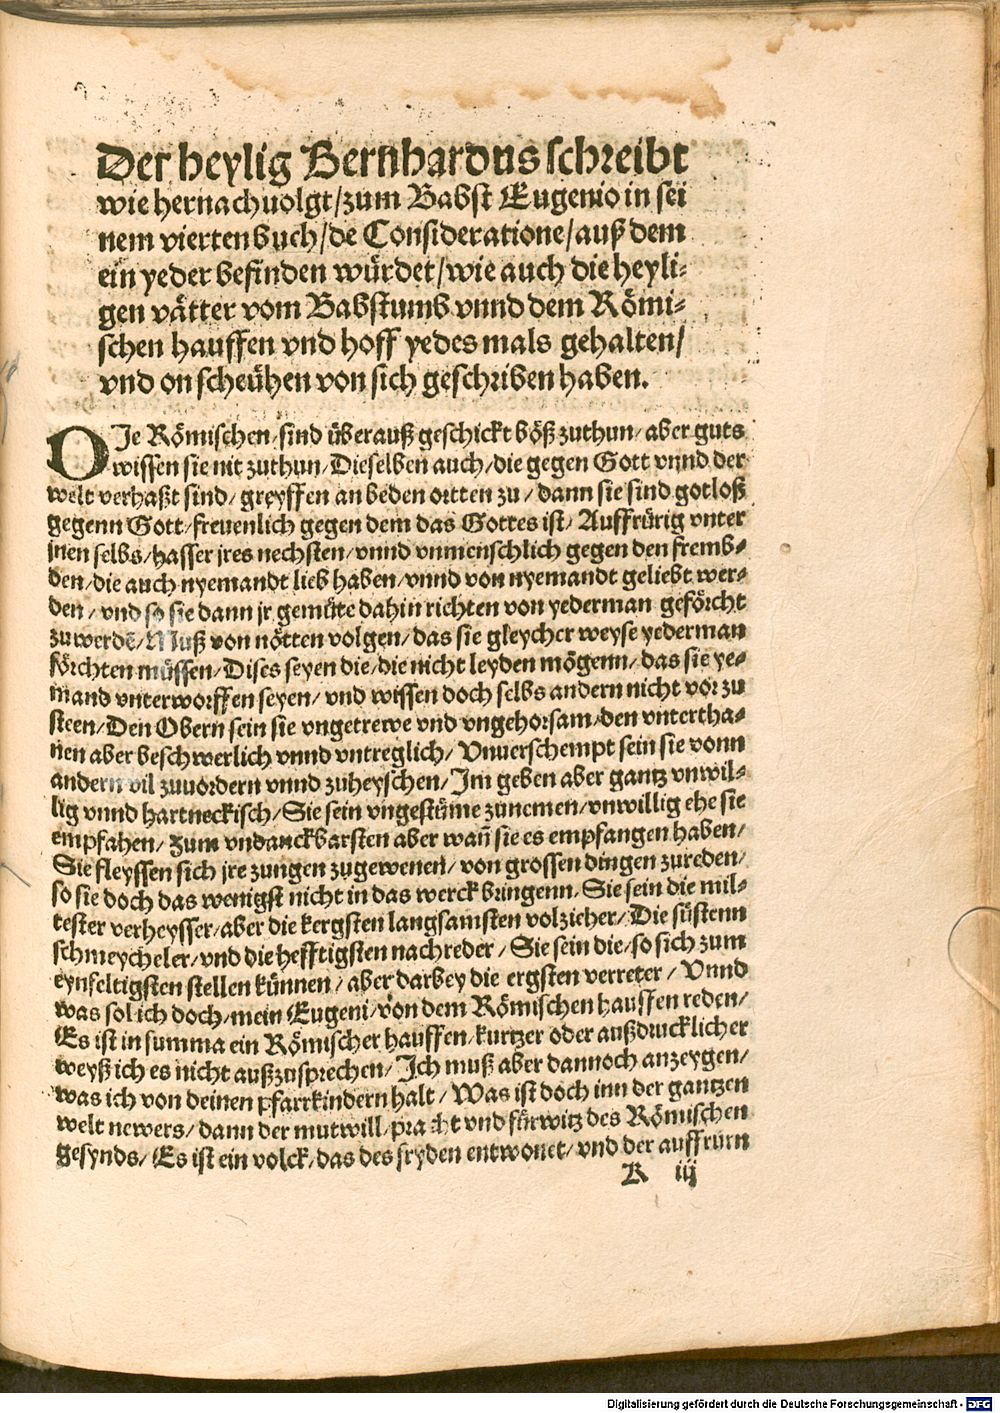 Der heylig Bernhardus schreibt
wie hernach uolgt/zum Babst Eugenio in sei
nem vierten buch/de Consideratione/auß dem
ein yeder befinden würdet/wie auch die heyli-
gen vätter vom Babstumb vnnd dem Römi-
schen hauffen vnd hoff yedes mals gehalten/
vnd on scheühen von sich geschriben haben.
DJe Römischen/sind überauß geschickt böß zuthun/aber guts
wissen sie nit zuthun/Dieselben auch/die gegen Gott vnnd der
welt verhaßt sind/greyffen an beden ortten zu/dann sie sind gotloß
gegenn Gott/freuenlich gegen dem das Gottes ist/Auffrürig vnter
jnen selbs/hasser jres nechsten/vnnd vnmenschlich gegen den fremb-
den/die auch nyemandt lieb haben/vnnd von nyemandt geliebt wer-
den/vnd so sie dann jr gemüte dahin richten von yederman geförcht
zuwerdē/Muß von nötten volgen/das sie gleycher weyse yederman
förchten müssen/Dises seyen die/die nicht leyden mögenn/das sie ye-
mand vnterworffen seyen/vnd wissen doch selbs andern nicht vor zu
steen/Den Obern sein sie vngetrewe vnd vngehorsam/den vntertha-
nen aber beschwerlich vnnd vntreglich/Vnuerschempt sein sie vonn
andern vil zuuordern vnnd zuheyschen/Jm geben aber gantz vnwil-
lig vnnd hartneckisch/Sie sein vngestüme zunemen/vnwillig ehe sie
empfahen/zum vndanckbarsten aber wañ sie es empfangen haben/
Sie fleyssen sich jre zungen zugewenen/von grossen dingen zureden/
so sie doch das wenigst nicht in das werck bringenn/Sie sein die mil-
tester verheysser/aber die kergsten langsamsten volzieher/Die süstenn
schmeycheler/vnd die hefftigsten nachreder/Sie sein die/so sich zum
eynfeltigsten stellen künnen/aber darbey die ergsten verreter/Vnnd
was sol ich doch/mein Eugeni/von dem Römischen hauffen reden/
Es ist in summa ein Römischer hauffen/kurtzer oder außdrucklicher
weyß ich es nicht außzusprechen/Jch muß aber dannoch anzeygen/
was ich von deinen pfarrkindern halt/Was ist doch inn der gantzen
welt newers/dann der mutwill/pracht vnd fürwitz des Römischen
gesynds/Es ist ein volck/das des fryden entwonet/vnd der auffrurn
K iij
Digitalisierung gefördert durch die Deutsche Forschungsgemeinschaft - DFG